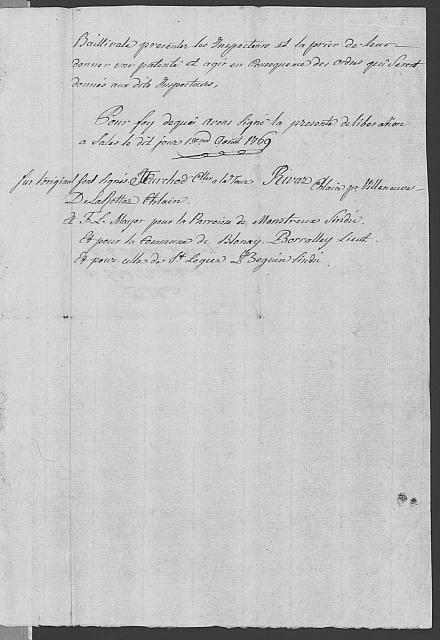 Baillivale presenter les Inspecteurs et la prier de leur
donner une patente et agir en Consequence des ordres qui Seront
donnés aux dits Inspecteurs,
Pour foy dequoi avons signé la presente deliberation
a Sales le dit jour 1er Aout 1769
sur l'original sont signés Curchod à la Tour Rivaz Chlain pr Villeneuve
Chlain
& F. L. Mayor pour la Parroisse de Montreux Sindic
Et pour la Commune de Blonay Borralley Lieut.
Et pour celle de St Legier Beguin Sindic